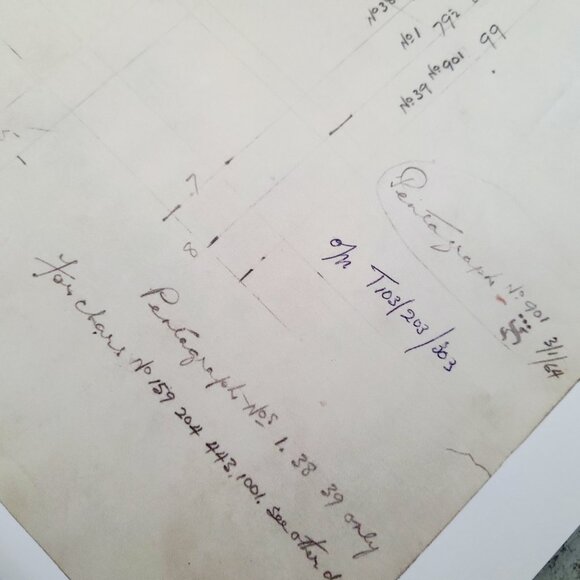 No 38
No 1 79½
No 39 No 901 99
7
8
Pentagraph No 901 3/1/64
o/n T103/203/303
Pentagraph Nos 1. 38 39 only
For chars No 159 204 443. 1001. see other d